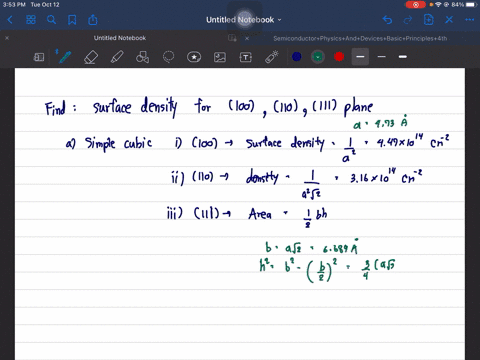 3:53 PM Tue Oct 12
84%
Untitled Notebook
Untitled Notebook
Semiconductor+Physics+And+Devices+Basic+Principles+4th
Find : surface density for (100) , (110) , (111) plane
a = 4.73 Å
a) Simple cubic i) (100) → surface density = 1/a² = 4.47×10¹⁴ cm⁻²
ii) (110) → density = 1/a²√2 = 3.16×10¹⁴ cm⁻²
iii) (111) → Area = 1/2 bh
b = a√2 = 6.689 Å
h² = b² - (b/2)² = 3/4 (a√2